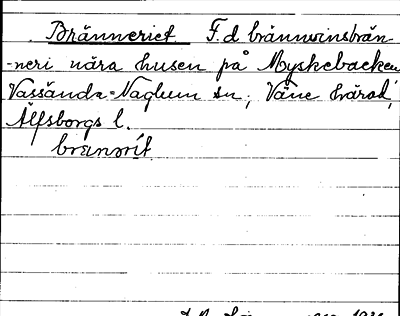 Bränneriet F.d brännvinsbrän-
-neri nära husen på Myskebacken
Vassända-Naglum sn, Väne härad,
Älfsborgs l.